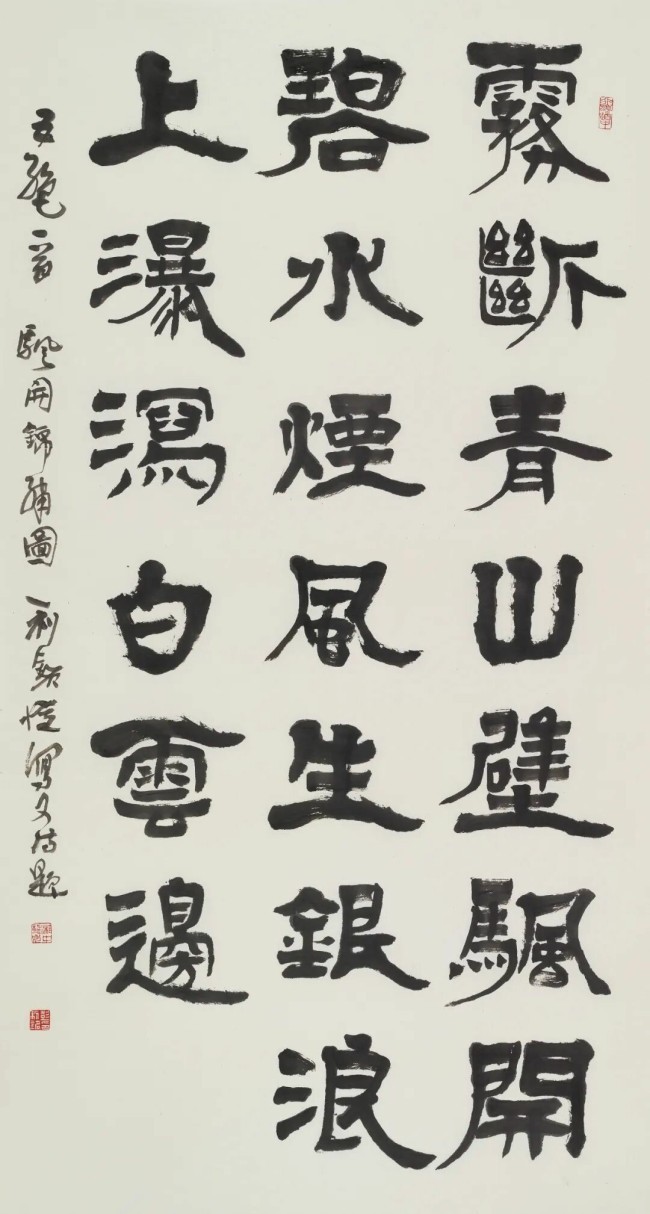 霧斷青山壁颿開
碧水煙風生銀浪
上瀑瀉白雲邊
五絕一首 颿開錦繡圖